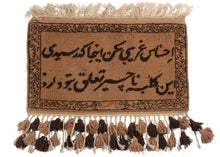 احساس غریبی مکن اینجا که رسیدی
این کلبه ناچیز تعلق بتو دارد